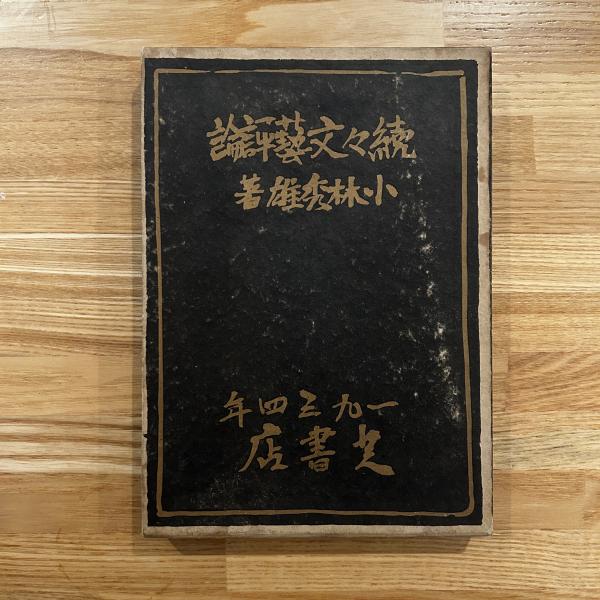 續々文藝評論
小林秀雄著
一九三四年
芝書店